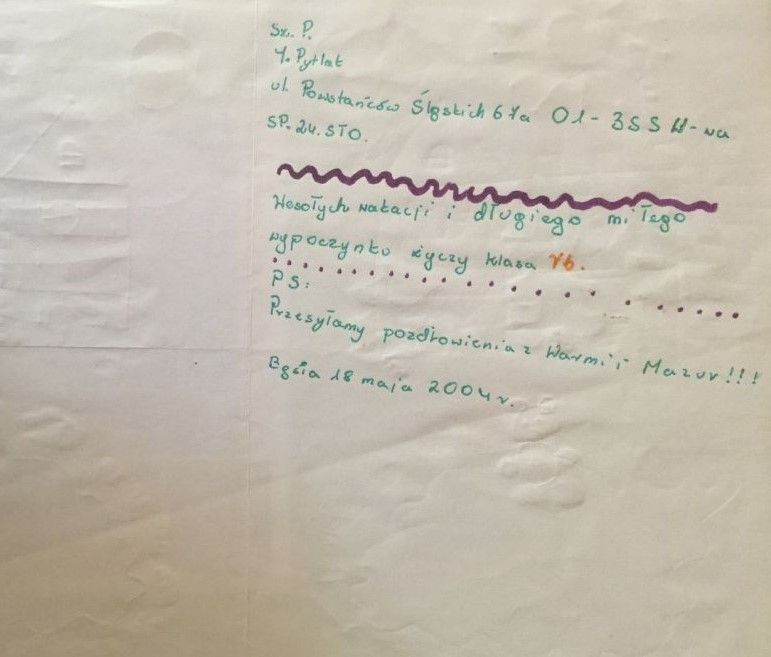 Sz. P.
J. Pytlak
ul. Powstańców Śląskich 67a 01-355 W-wa
SP. 24. STO.
Wesołych wakacji i długiego miłego
wypoczynku życzy klasa Vb.
PS:
Przesyłamy pozdrowienia z Warmii i Mazur!!!
18 maja 2004 r.